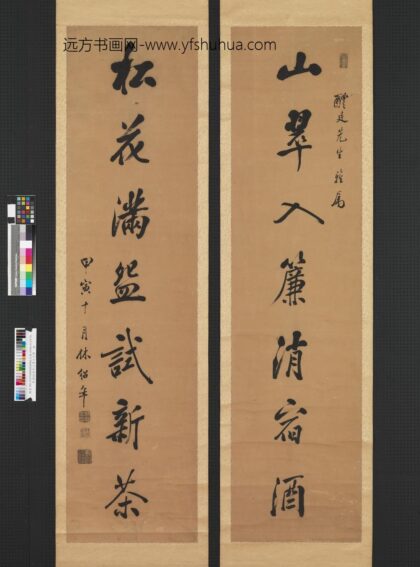 远方书画网-www.yfshuhua.com
山翠入簾消宿酒
先生雅屬
松花滿盌試新茶
甲寅十月林紹年